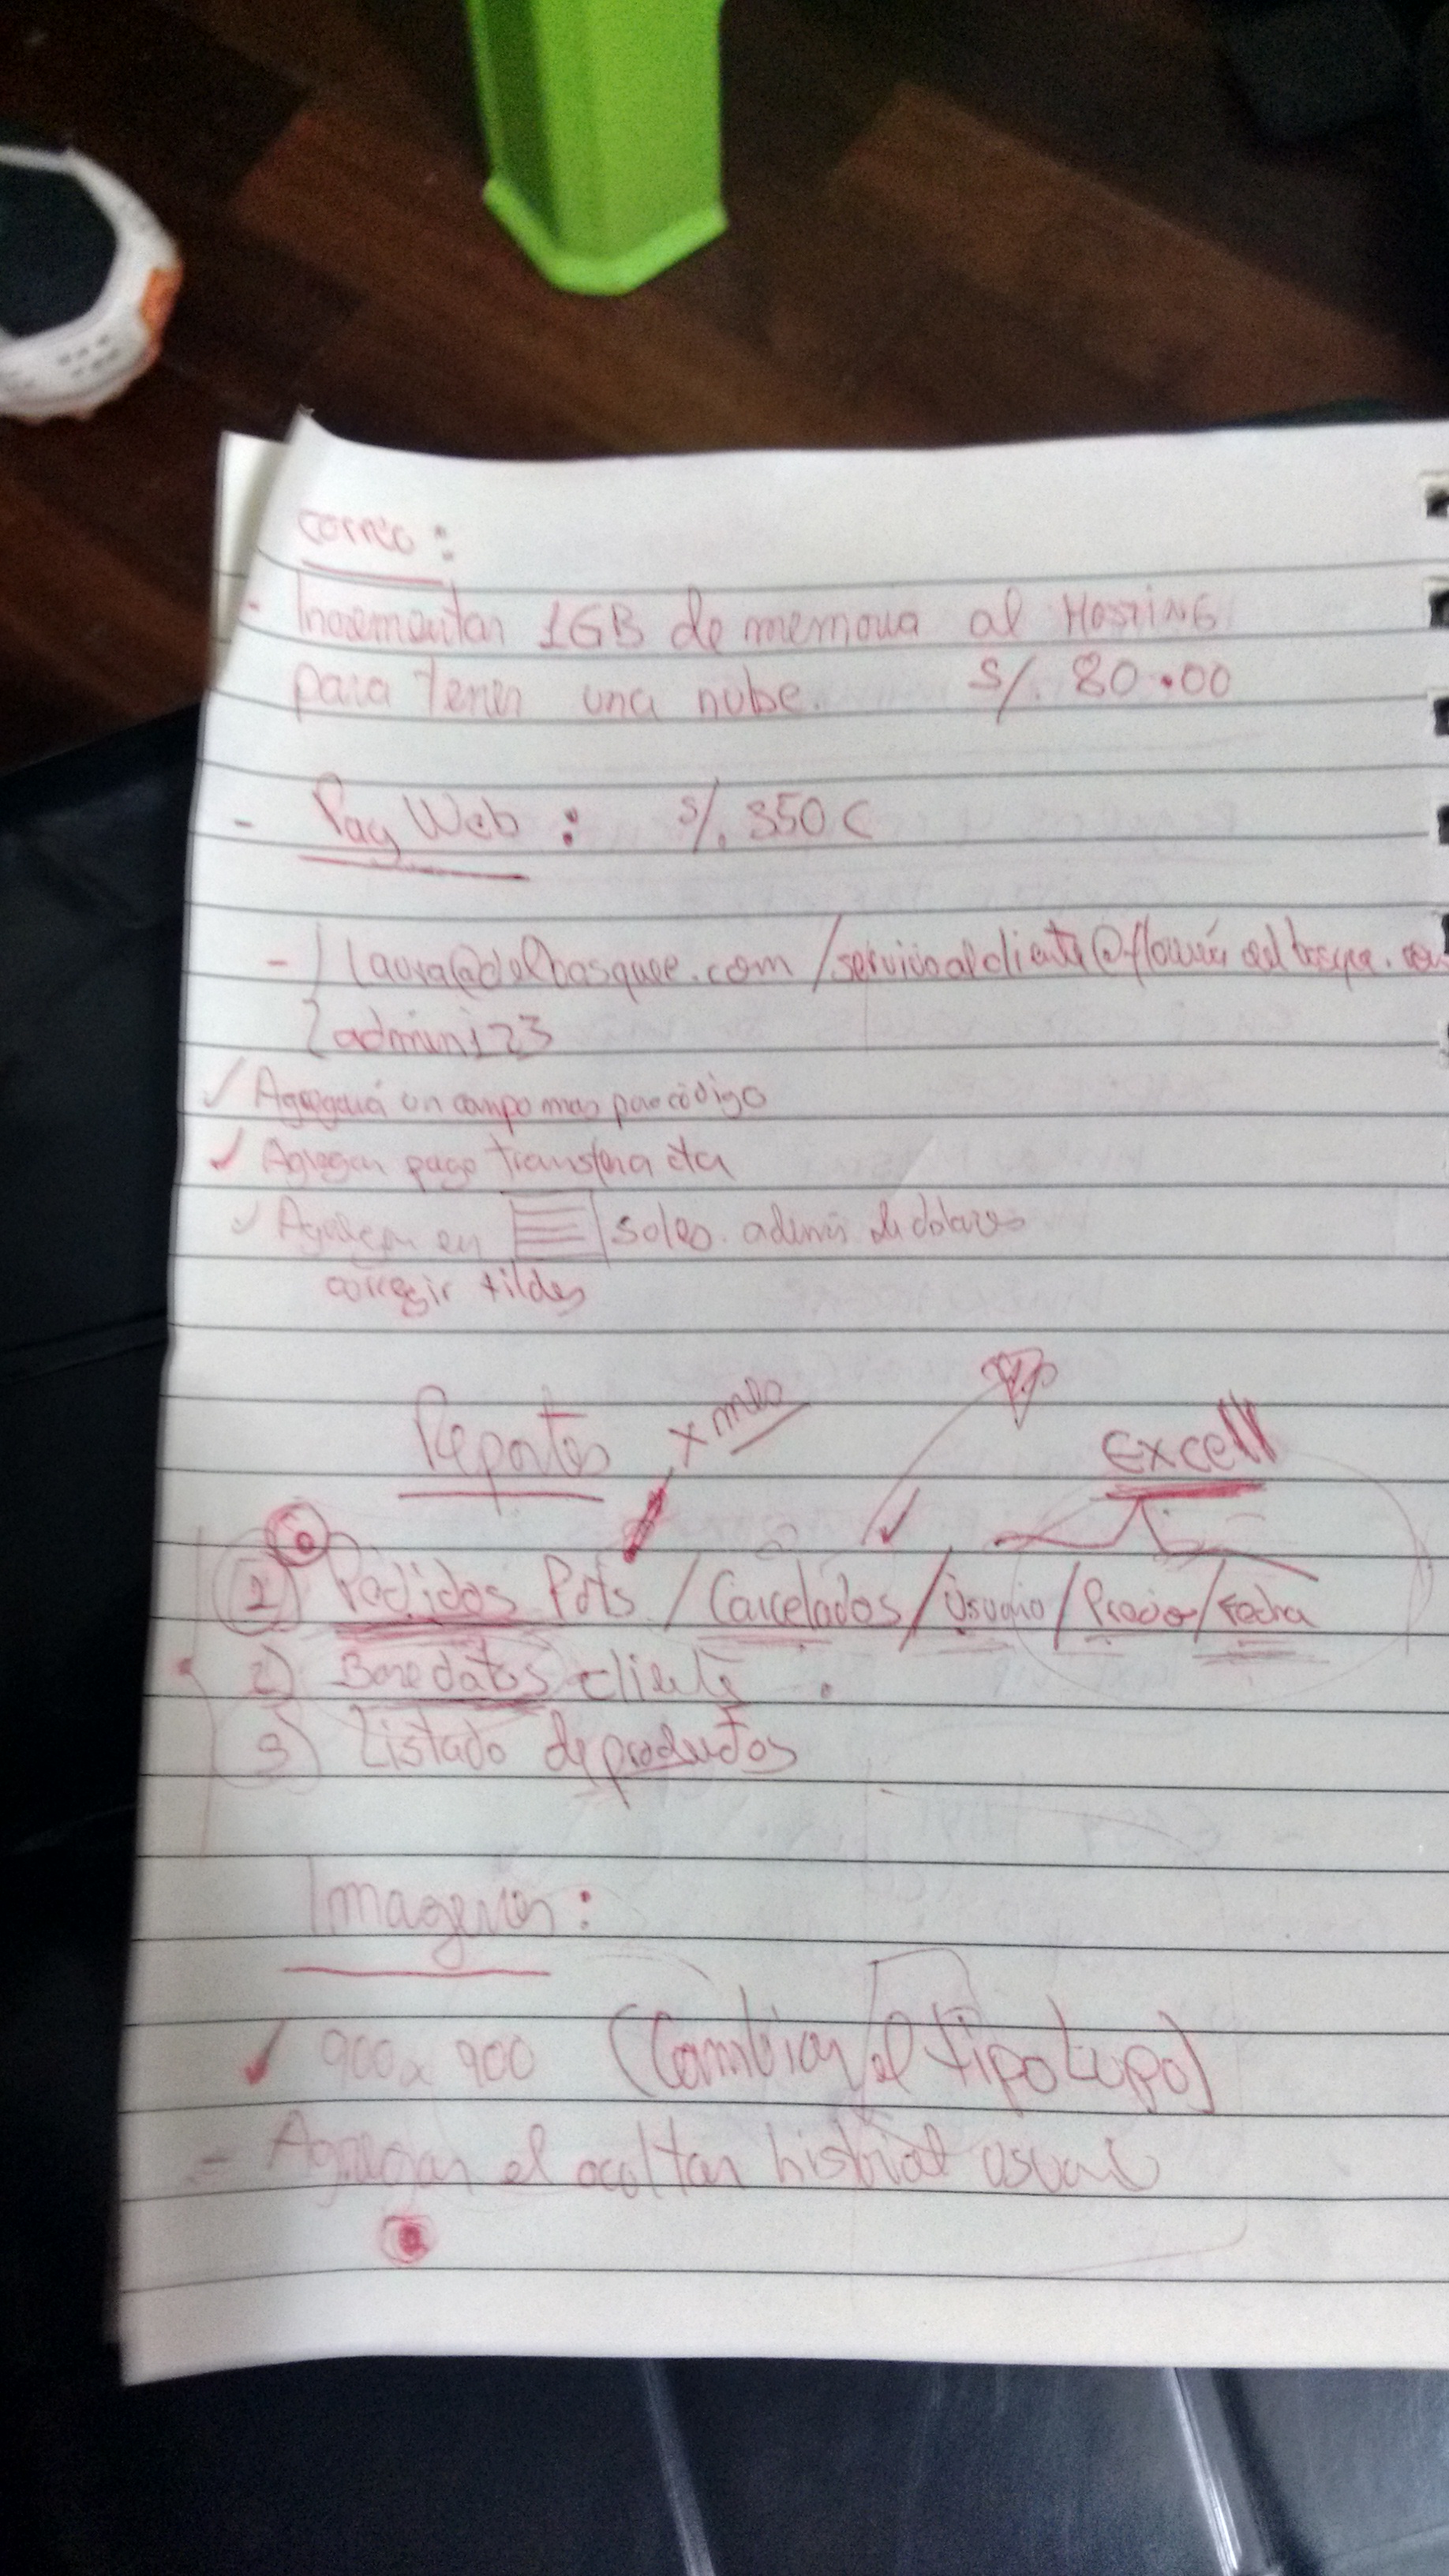 correo:
- Incrementar 1GB de memoria al HOSTING
para tener una nube. S/. 80.00
- Pag Web: S/. 350
- laura@delbosquee.com / servicioalcliente@
admin123
✓ Agregará un campo mas para código
✓ Agregar pago transferencia
✓ Agregar en soles. además de dolares
corregir tildes
Reportes x mes Excell
1) Pedidos / Cancelados / Usuario / Precio / Fecha
2) Base datos cliente
3) Listado de productos
Imagenes:
✓ 900 x 900 (Cambiar el tipo)
- Agregar el ocultar historial